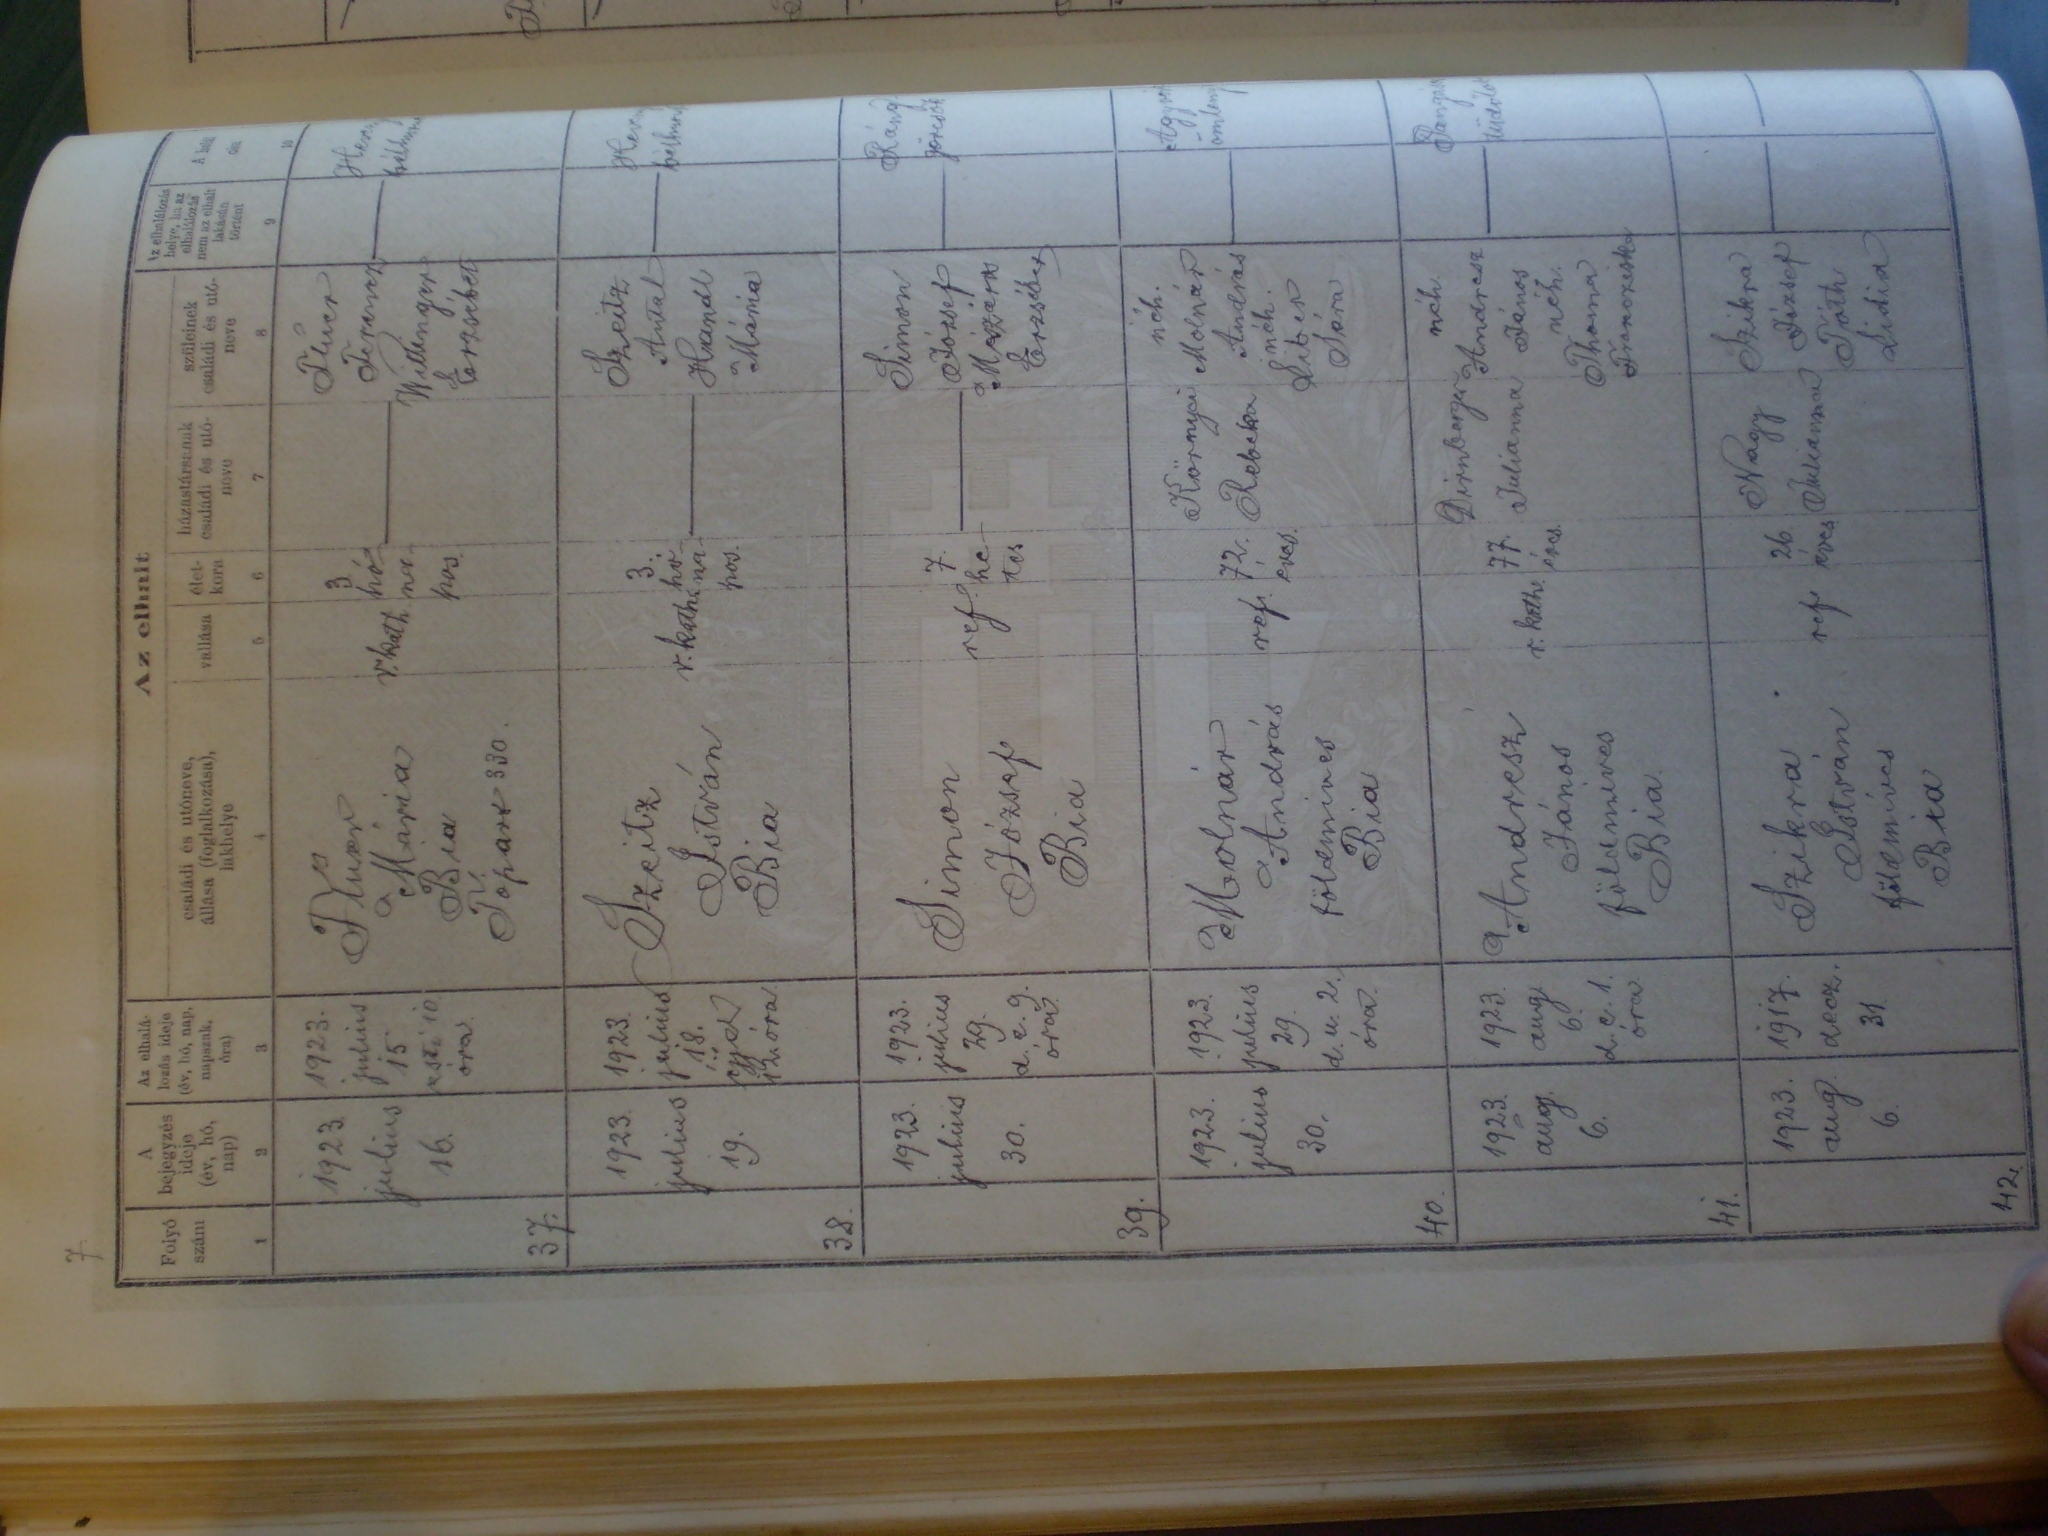 7.
Az elhunyt
Folyó
szám
A
bejegyzés
ideje
(év, hó,
nap)
Az elhalá-
lozás ideje
(év, hó, nap,
napszak,
óra)
családi és utóneve,
állása (foglalkozása),
lakhelye
vallása
élet-
kora
házastársának
családi és utó-
neve
szüleinek
családi és utó-
neve
Az elhalálozás
helye, ha az
elhalálozás
nem az elhalt
lakásán
történt
A halál
oka
1
2
3
4
5
6
7
8
9
10
37.
1923.
julius
16.
1923.
julius
15
esti 10
óra
Mária
Bia
330.
r. kath.
3
hó-
na-
pos.
Ferencz
Wittinger
Erzsébet
38.
1923.
julius
19.
1923.
julius
18.
éjjel
12. óra.
Szeitz
István
Bia
r. kath.
3.
hó-
na-
pos.
Szeitz
Antal
Handl
Mária
39.
1923.
julius
30.
1923.
julius
29.
d. e. 9.
óra
Simon
József
Bia
ref.
7.
he-
tes
Simon
József
Mészáros
Erzsébet
Ráng
görcsök
40.
1923.
julius
30.
1923.
julius
29.
d. u. 2.
óra.
Molnár
András
földmíves
Bia
ref.
72.
éves.
Környei
Rebeka
néh.
Molnár
András
néh.
Liber
Sára
41.
1923.
aug.
6.
1923.
aug.
6.
d. e. 1.
óra
Andresz
János
földmíves
Bia.
r. kath.
77.
éves.
Dirnberger
Julianna
néh.
Andresz
János
néh.
Thoma
Franciska
42.
1923.
aug.
6.
1917.
decz.
31.
Szikra
István
földmíves
Bia
ref
26.
éves
Nagy
Julianna
Szikra
József
Tóth
Lidia